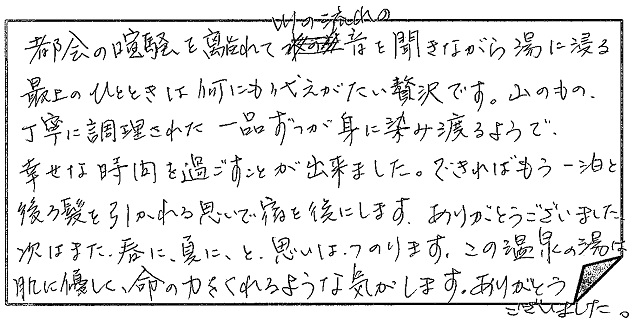 川の流れの
都会の喧騒を離れて 音を聞きながら湯に浸る
最上のひとときは何にもかえがたい贅沢です。山のもの、
丁寧に調理された一品ずつが身に染み渡るようで、
幸せな時間を過ごすことが出来ました。できればもう一泊と
後ろ髪を引かれる思いで宿を後にします。ありがとうございました。
次はまた、春に、夏に、と、思いは、つのります。この温泉の湯は
肌に優しく、命の力をくれるような気がします。ありがとう
ございました。